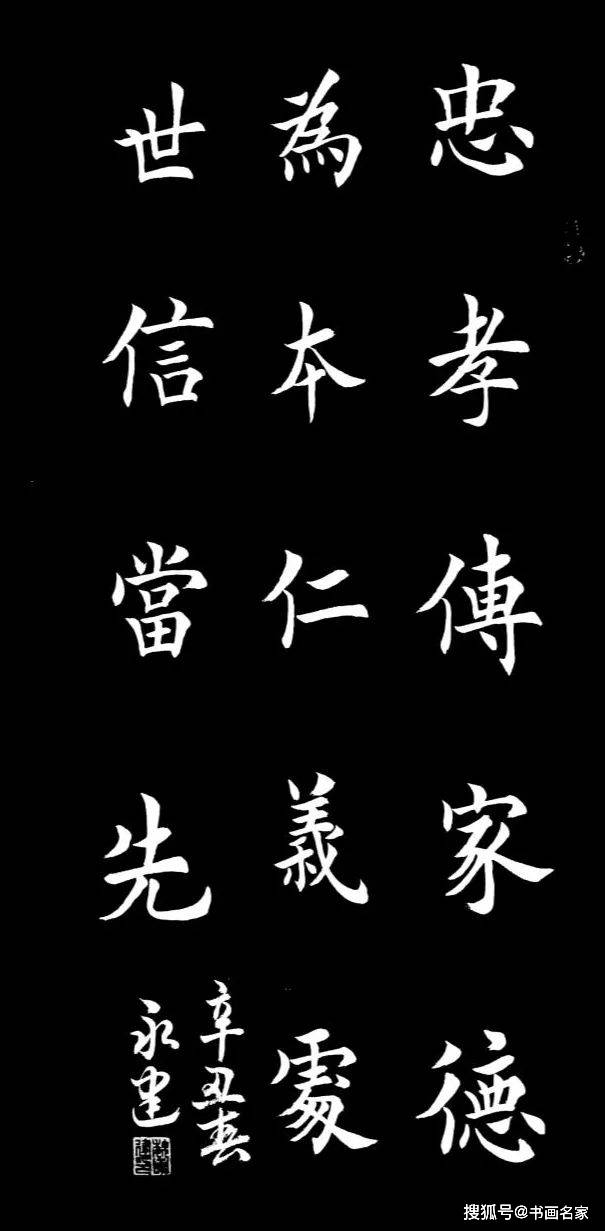 忠孝傳家德
為本仁義處
世信當先
辛丑春
永建
搜狐号@书画名家